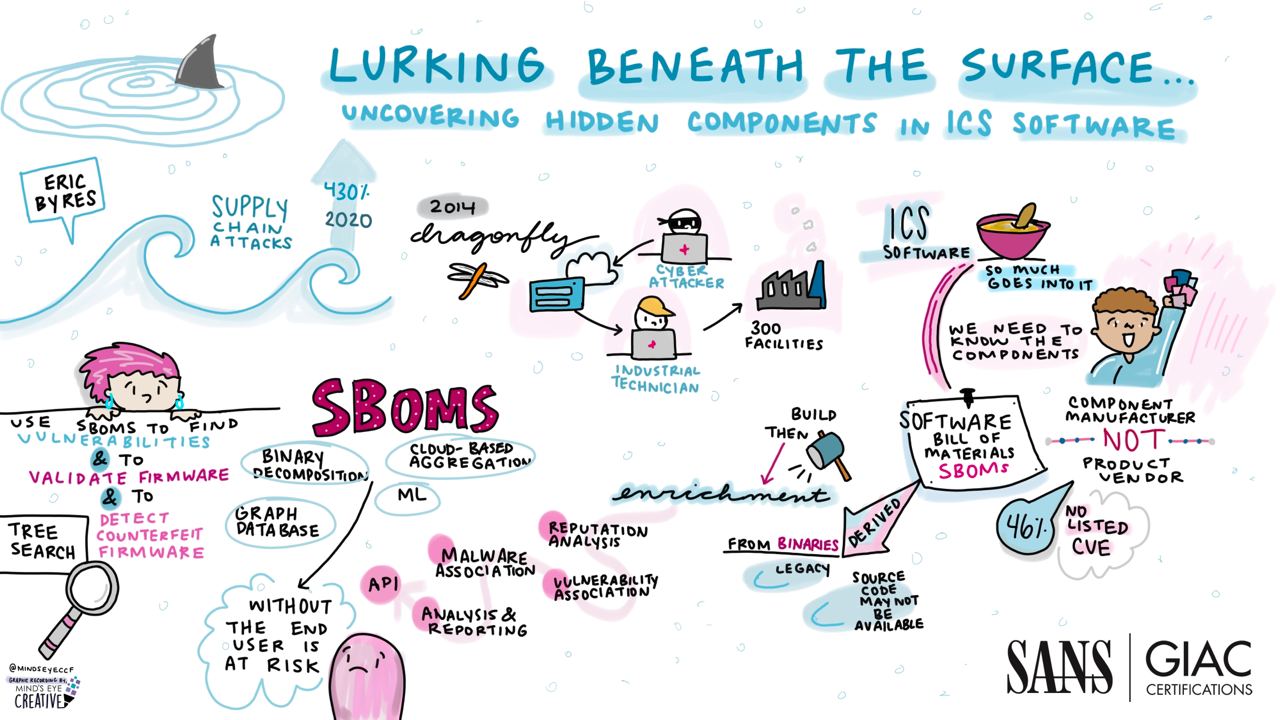 LURKING BENEATH THE SURFACE...
UNCOVERING HIDDEN COMPONENTS IN ICS SOFTWARE
ERIC
BYRES
SUPPLY
CHAIN
ATTACKS
430%
2020
2014
dragonfly
CYBER
ATTACKER
INDUSTRIAL
TECHNICIAN
300
FACILITIES
ICS
SOFTWARE
SO MUCH
GOES INTO IT
WE NEED TO
KNOW THE
COMPONENTS
SOFTWARE
BILL OF
MATERIALS
SBOMs
COMPONENT
MANUFACTURER
NOT
PRODUCT
VENDOR
46%
NO
LISTED
CVE
DERIVED
FROM BINARIES
LEGACY
SOURCE
CODE
MAY NOT
BE
AVAILABLE
BUILD
THEN
enrichment
REPUTATION
ANALYSIS
VULNERABILITY
ASSOCIATION
MALWARE
ASSOCIATION
ANALYSIS &
REPORTING
API
SBOMS
BINARY
DECOMPOSITION
CLOUD-BASED
AGGREGATION
ML
GRAPH
DATABASE
WITHOUT
THE END
USER IS
AT RISK
USE SBOMS TO FIND
VULNERABILITIES
& TO
VALIDATE FIRMWARE
& TO
DETECT
COUNTERFEIT
FIRMWARE
TREE
SEARCH
@MINDSEYECCF
GRAPHIC RECORDING BY:
MIND'S EYE
CREATIVE
SANS
GIAC
CERTIFICATIONS